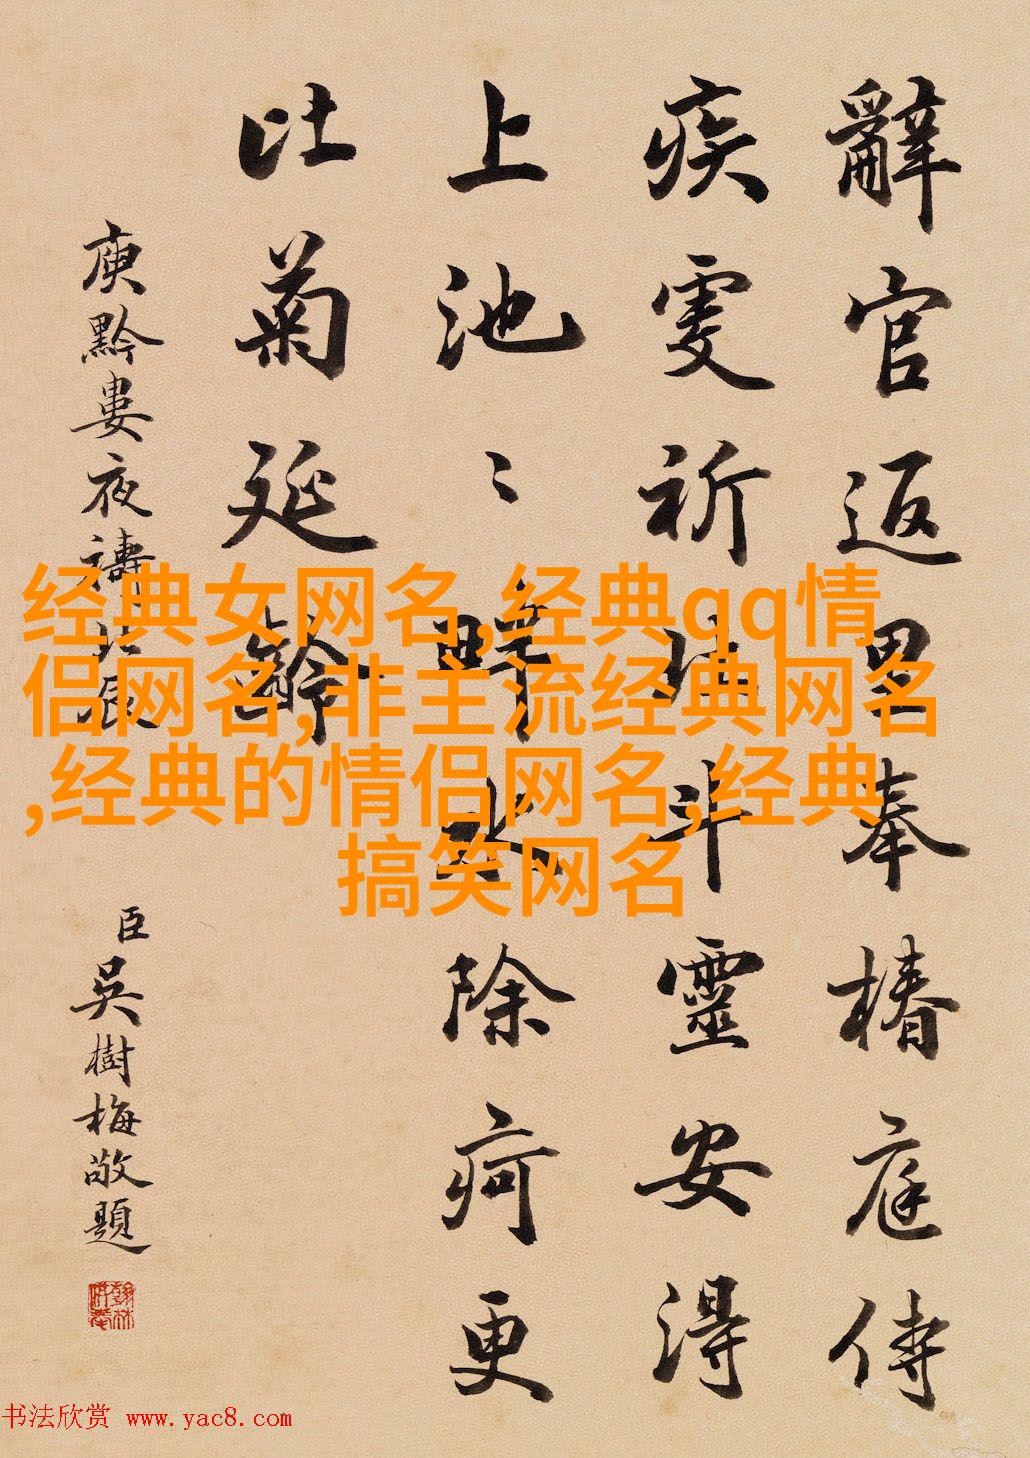 辭官返里奉椿庭侍
疾虔祈北斗靈安得
上池〻畔水除疴更
比菊延齡
庾黔婁夜禱北辰
臣吳樹梅敬題
经典女网名,经典qq情
侣网名,非主流经典网名
,经典的情侣网名,经典
搞笑网名
书法欣赏 www.yac8.com